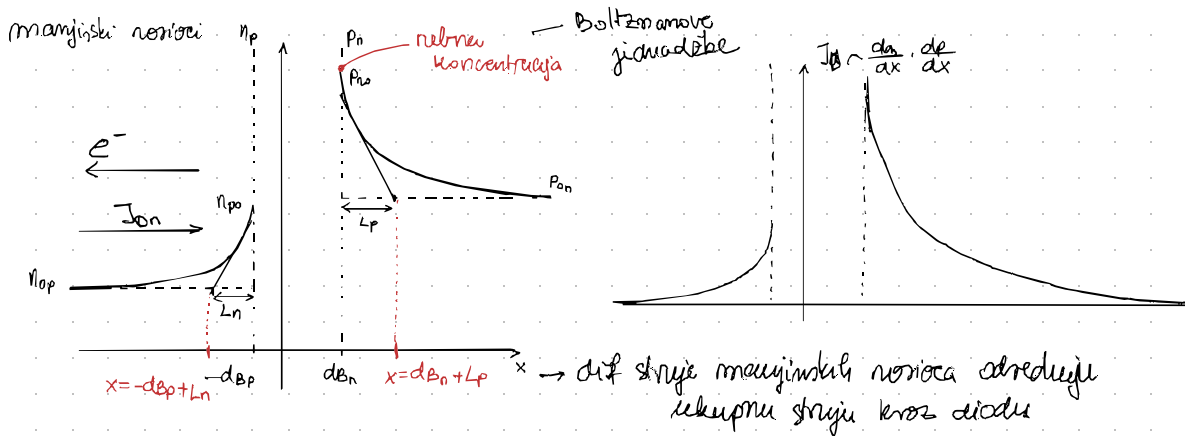 manjinski nosioci
np
pn
rubna
koncentracija
— Boltzmanove
jednadžbe
JD ~ dn/dx · dp/dx
pno
e⁻
JDn
npo
Lp
Pon
nop
Ln
-dBp
dBn
x
x = -dBp + Ln
x = dBn + Lp
→ dif struje manjinskih nosioca određuju
ukupnu struju kroz diodu